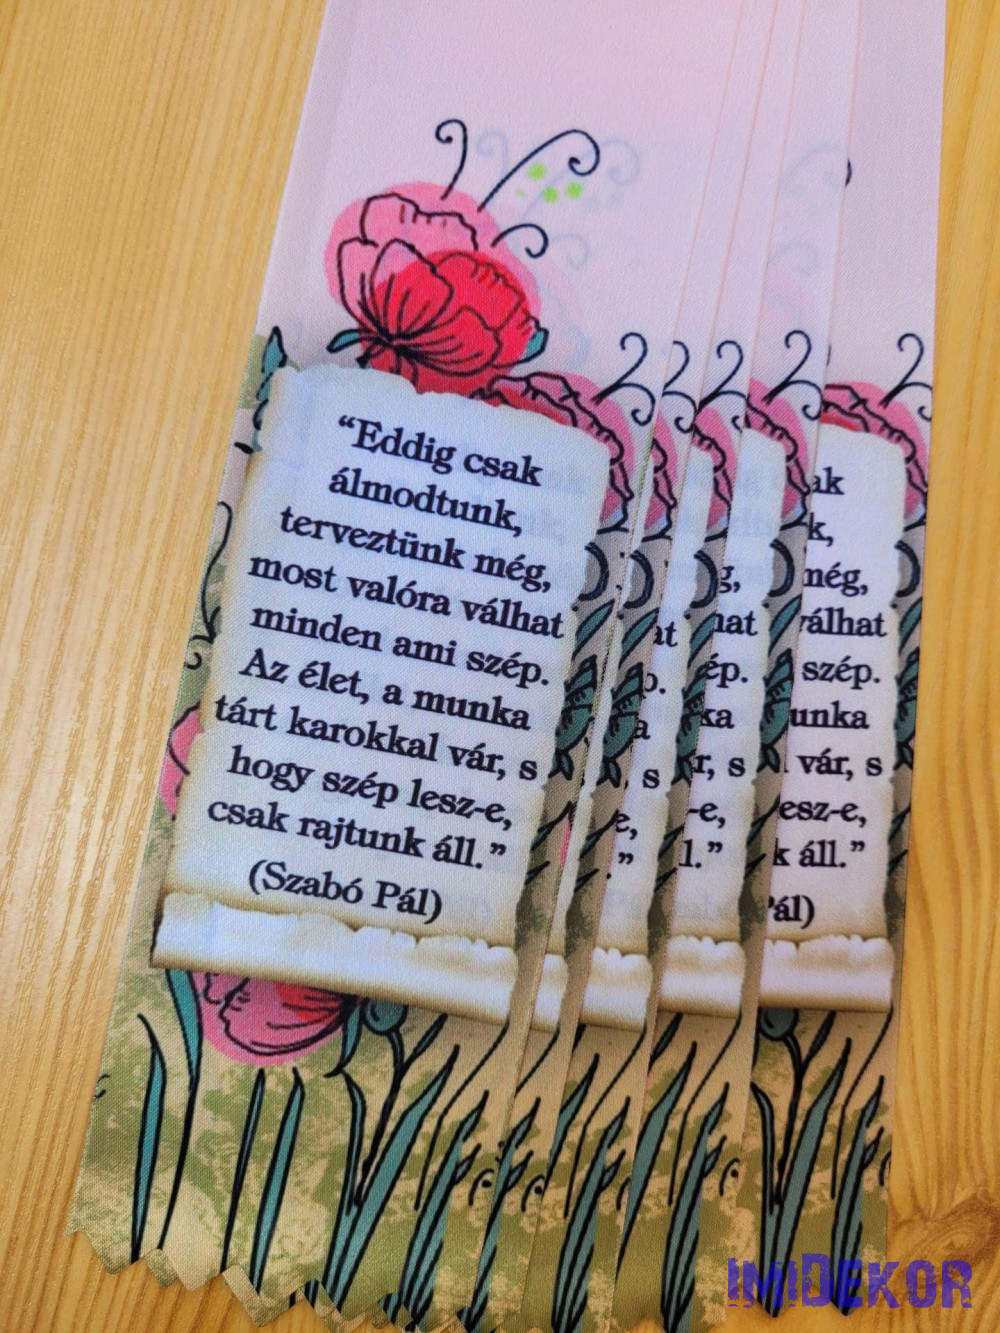 “Eddig csak
álmodtunk,
terveztünk még,
most valóra válhat
minden ami szép.
Az élet, a munka
tárt karokkal vár, s
hogy szép lesz-e,
csak rajtunk áll.”
(Szabó Pál)
at
s
”
nat
ép.
ka
r, s
-e,
l.”
ak
k,
még,
válhat
szép.
unka
vár, s
esz-e,
k áll.”
Pál)
IMIDEKOR